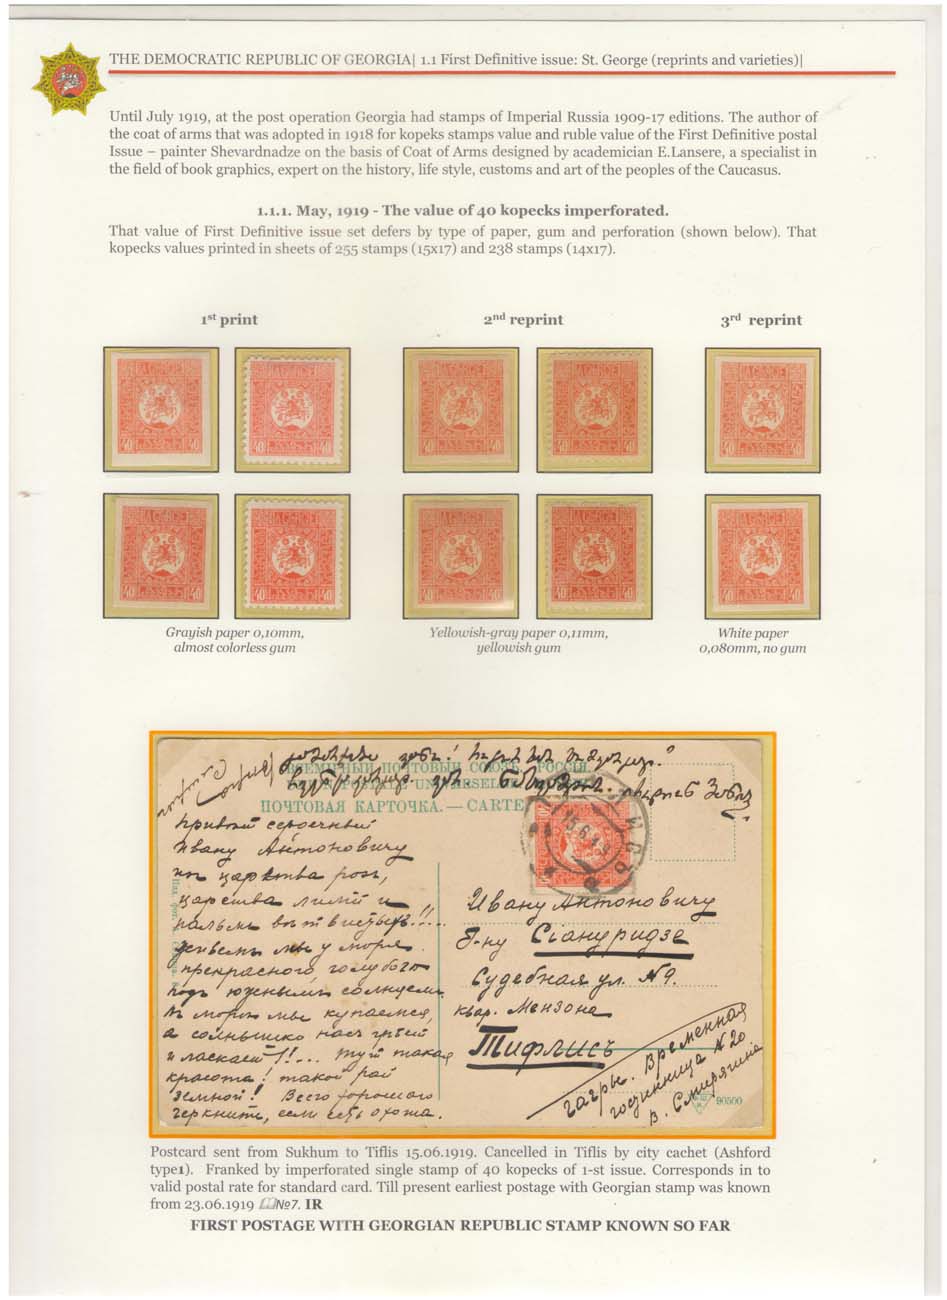 THE DEMOCRATIC REPUBLIC OF GEORGIA| 1.1 First Definitive issue: St. George (reprints and varieties)|
Until July 1919, at the post operation Georgia had stamps of Imperial Russia 1909-17 editions. The author of
the coat of arms that was adopted in 1918 for kopeks stamps value and ruble value of the First Definitive postal
Issue – painter Shevardnadze on the basis of Coat of Arms designed by academician E.Lansere, a specialist in
the field of book graphics, expert on the history, life style, customs and art of the peoples of the Caucasus.
1.1.1. May, 1919 - The value of 40 kopecks imperforated.
That value of First Definitive issue set defers by type of paper, gum and perforation (shown below). That
kopecks values printed in sheets of 255 stamps (15x17) and 238 stamps (14x17).
1st print
2nd reprint
3rd reprint
LA GEORGIE
40 40
LA GEORGIE
40 40
LA GEORGIE
40 40
LA GEORGIE
40 40
LA GEORGIE
40 40
LA GEORGIE
40 40
LA GEORGIE
40 40
LA GEORGIE
40 40
LA GEORGIE
40 40
LA GEORGIE
40 40
Grayish paper 0,10mm,
almost colorless gum
Yellowish-gray paper 0,11mm,
yellowish gum
White paper
0,080mm, no gum
ВСЕМІРНЫЙ ПОЧТОВЫЙ СОЮЗЪ. РОССІЯ
ПОЧТОВАЯ КАРТОЧКА. — CARTE
15.6.19
Привет сердечный
Ивану Антоновичу
из царства роз,
царства лилий и
пальм
живемъ мы у моря
прекраснаго, голубого
подъ южнымъ солнцемъ
Въ морѣ мы купаемся,
а солнышко насъ грѣет
и ласкает!!... Тут такая
красота! такой рай
земной! Всего хорошаго
черкните, если есть охота.
Ивану Антоновичу
Г-ну Сіануридзе
Судебная ул. №9.
квар. Мензона
Тифлисъ
Гагры. Временная
гостинница №20
В. Смирягина
90500
Postcard sent from Sukhum to Tiflis 15.06.1919. Cancelled in Tiflis by city cachet (Ashford
type1). Franked by imperforated single stamp of 40 kopecks of 1-st issue. Corresponds in to
valid postal rate for standard card. Till present earliest postage with Georgian stamp was known
from 23.06.1919 №7. IR
FIRST POSTAGE WITH GEORGIAN REPUBLIC STAMP KNOWN SO FAR